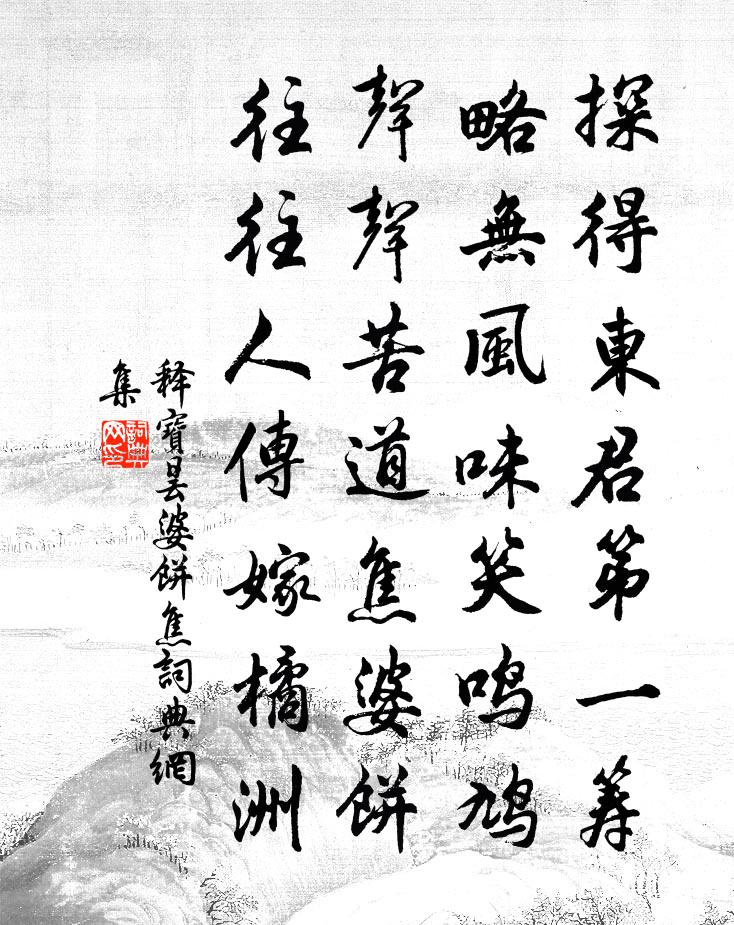 探得東君第一筹
略無風味笑鸣鳩
聲聲苦道焦婆餅
往往人傳嫁橘洲
释寶昙婆餅焦詞典網
集